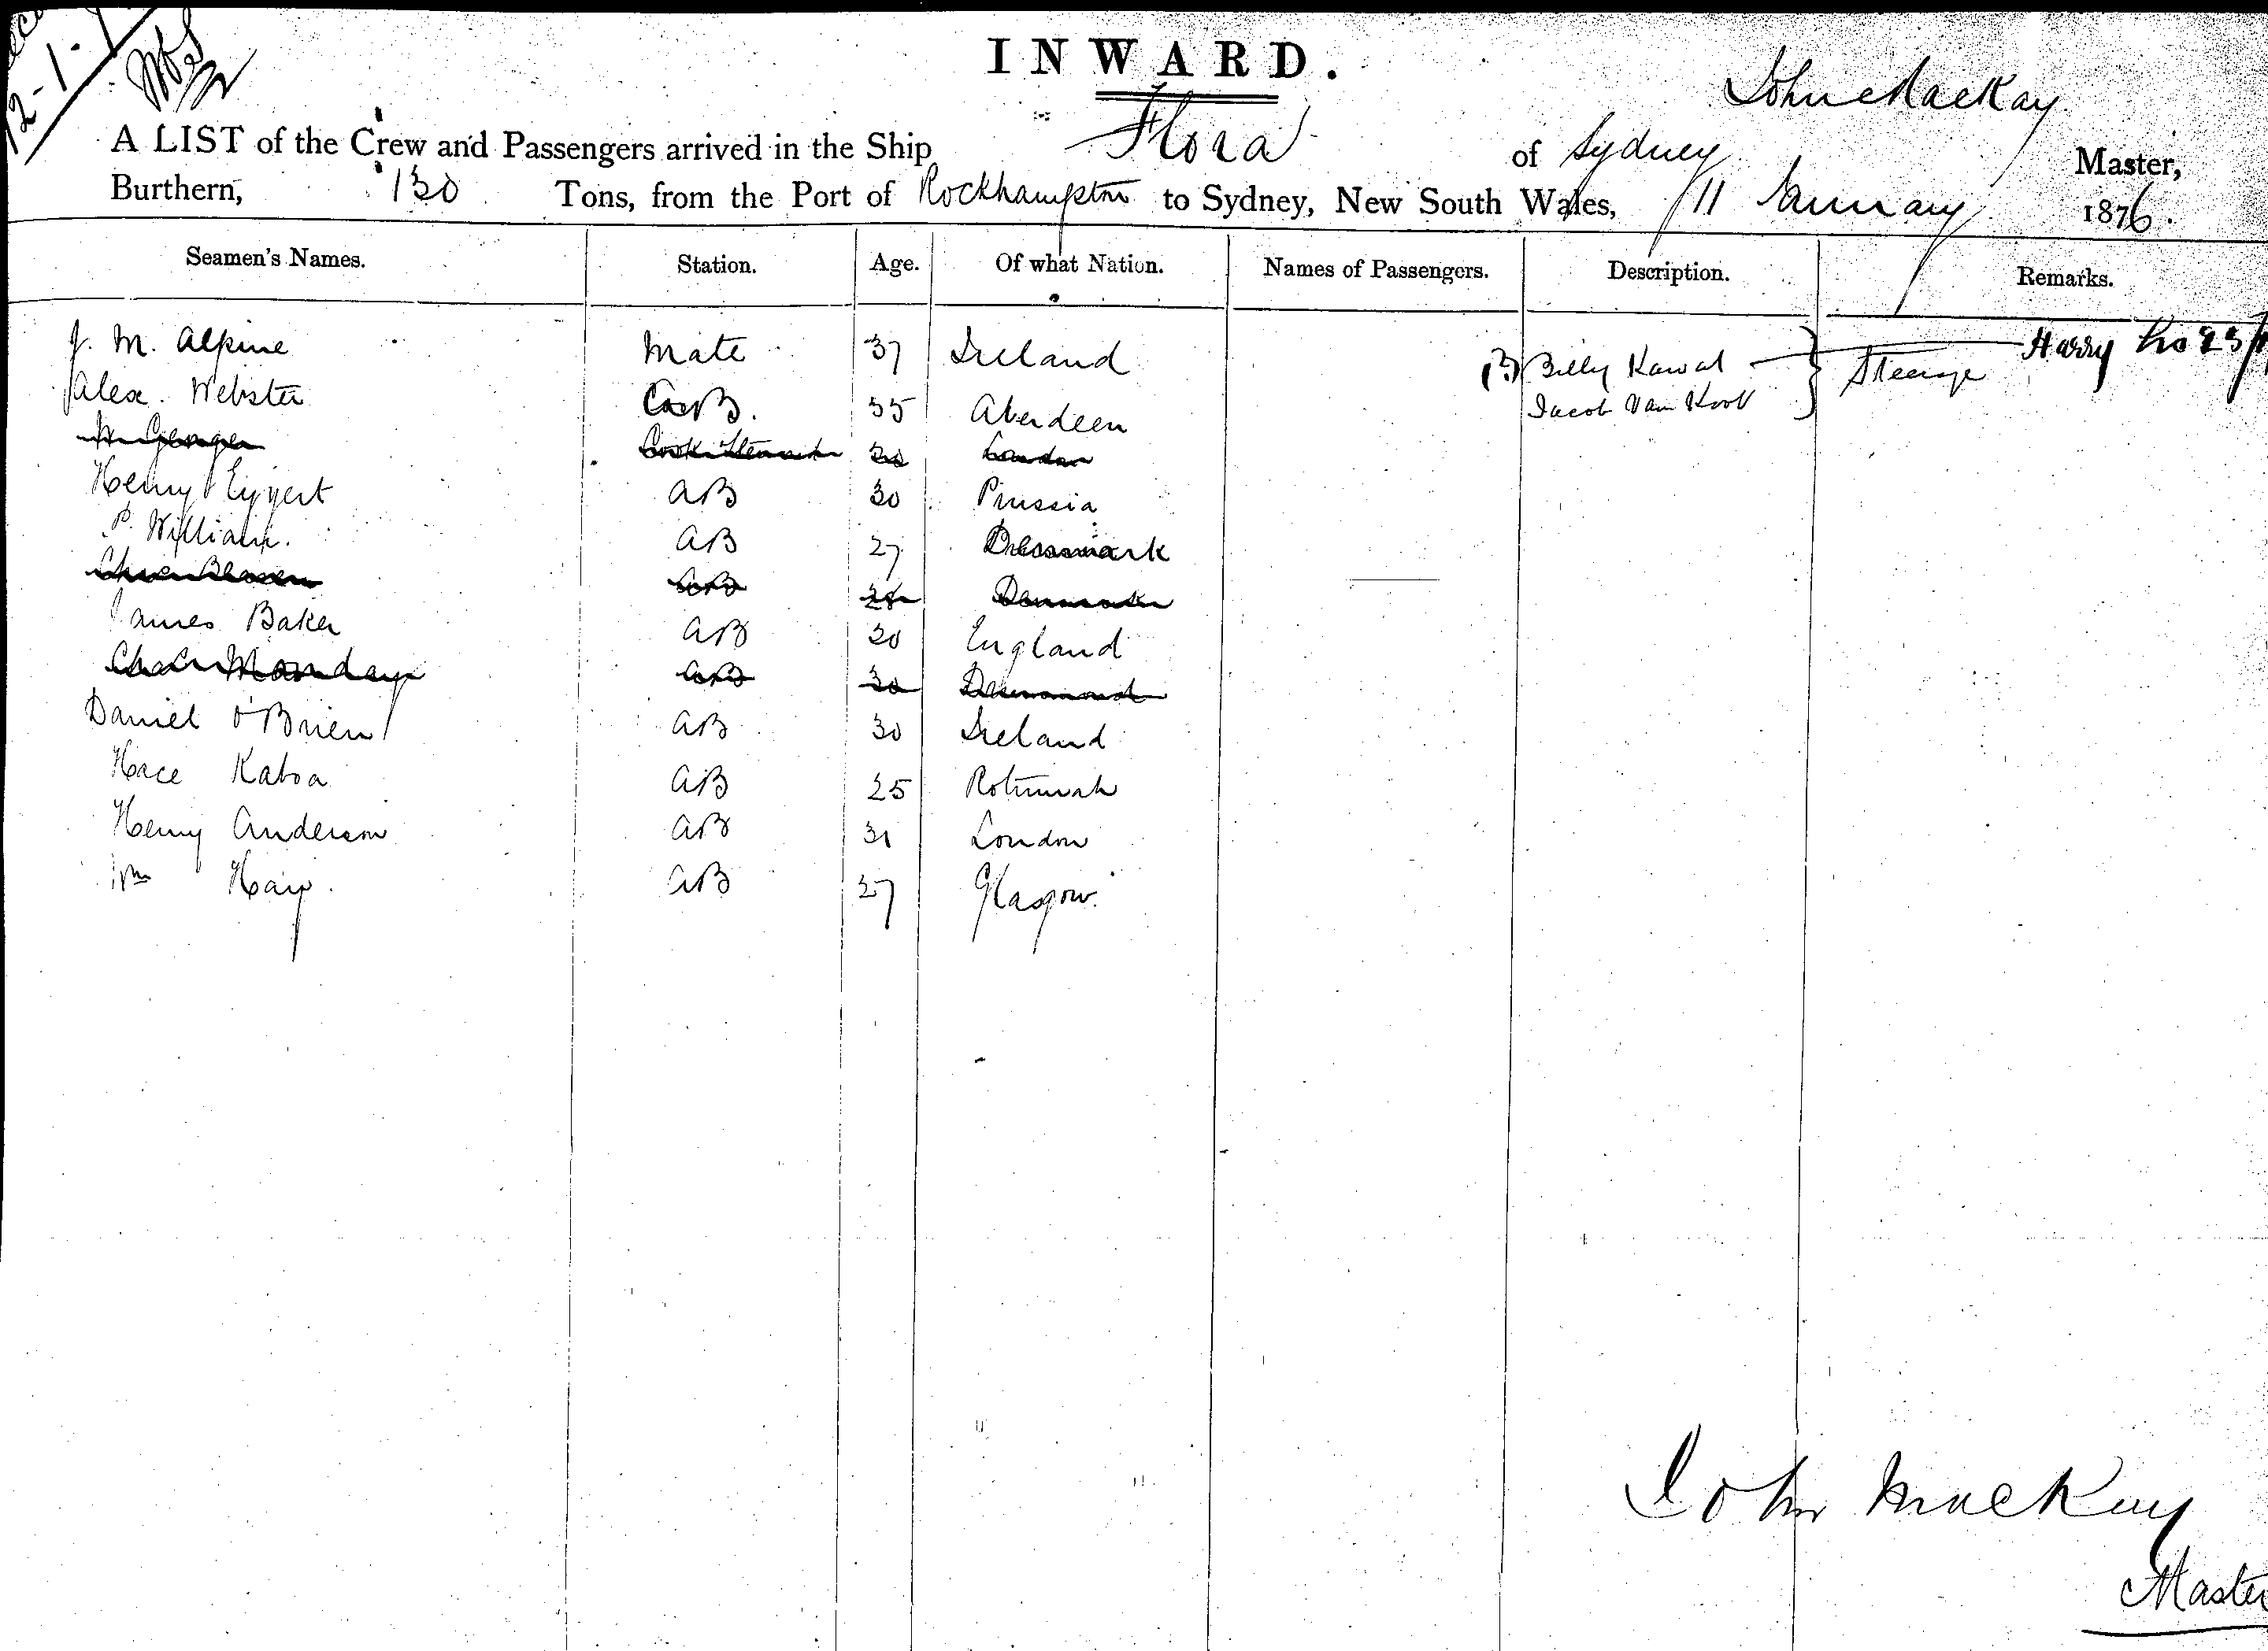 12-1-
INWARD.
John MacKay
A LIST of the Crew and Passengers arrived in the Ship Flora of Sydney Master,
Burthern, 130 Tons, from the Port of Rockhampton to Sydney, New South Wales, 11 January 1876.
Seamen's Names. Station. Age. Of what Nation. Names of Passengers. Description. Remarks.
J. M. Alpine Mate 37 Ireland (2) Billy Kawal Steerage Harry No 23
Alex. Webster 35 Aberdeen Jacob Van
Cook Steward London
Henry Eggert AB 30 Prussia
P. William. AB 27 Denmark
AB 28 Denmark
James Baker AB 30 England
Monday AB 30
Daniel O'Brien AB 30 Ireland
Hace Katoa AB 25 Rotumah
Henry Anderson AB 31 London
Wm AB 27 Glasgow.
John MacKay
Master